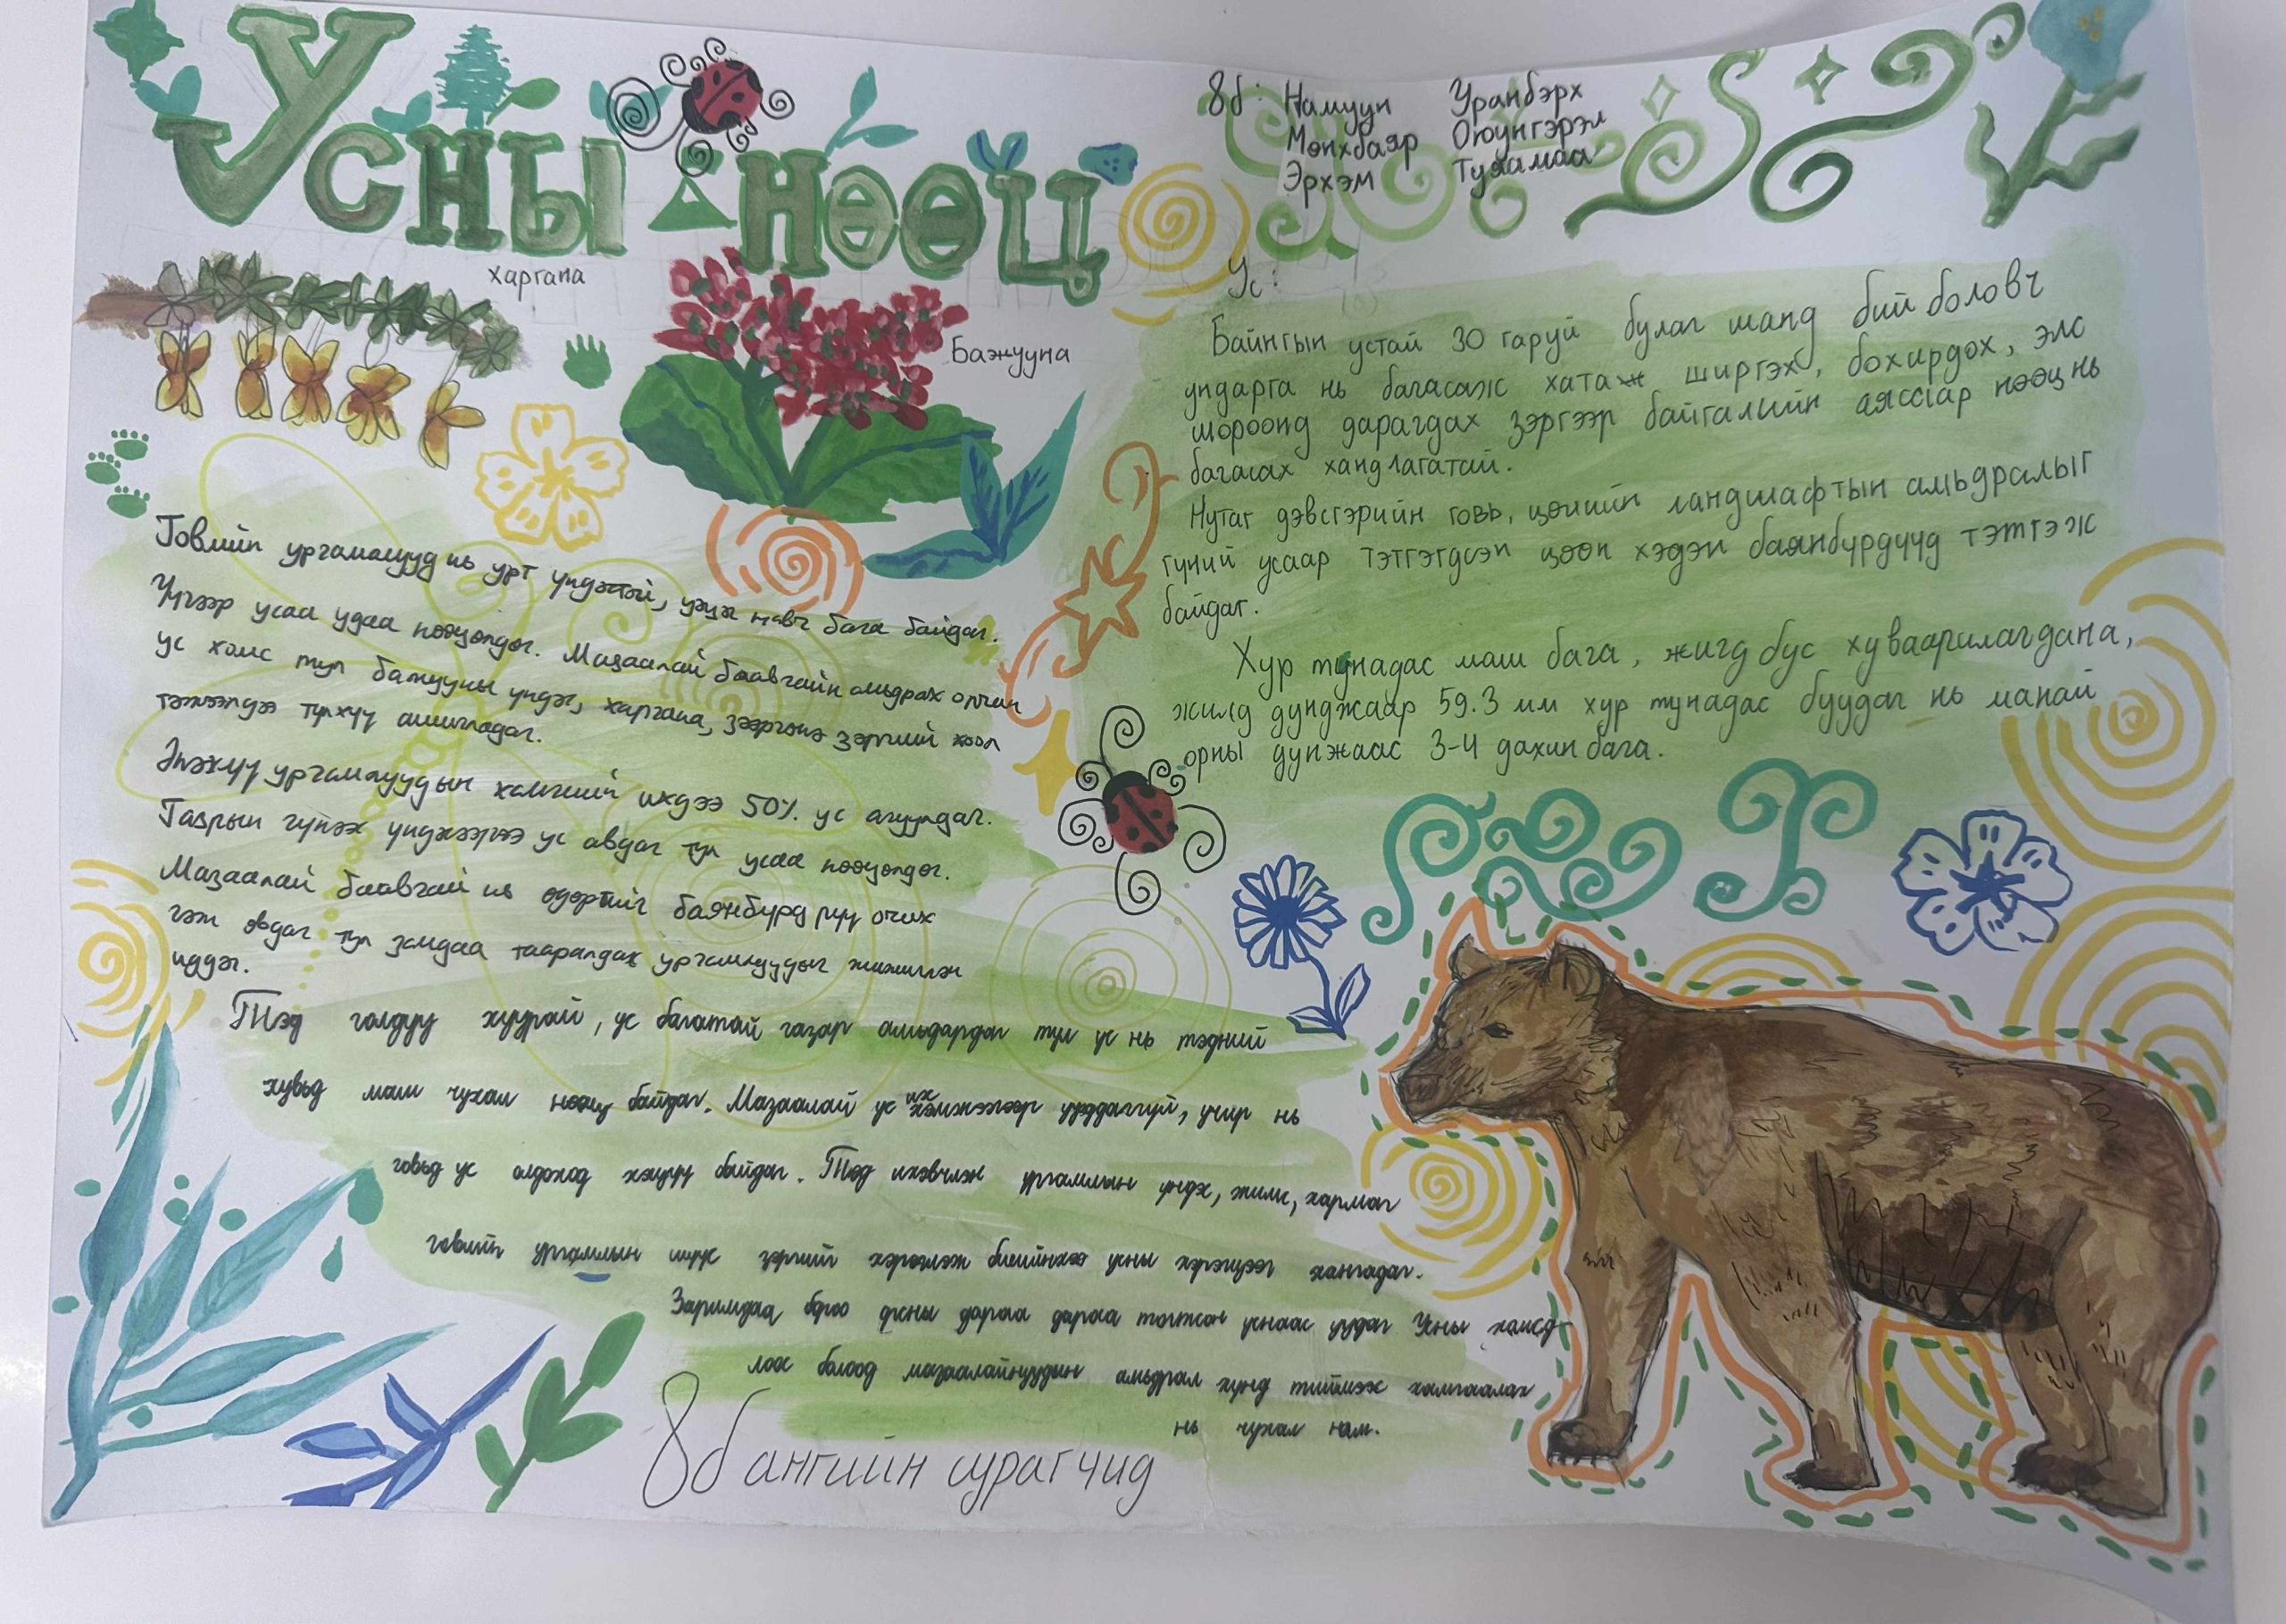 Усны нөөц
8б: Намуун Уранбэрх
Мөнхбаяр Оюунгэрэл
Эрхэм Туяамаа
харгана
Бажууна
Ус:
Байнгын устай 30 гаруй булаг шанд бий боловч
ундарга нь багасаж хатаж ширгэх, бохирдох, элс
шороонд дарагдах зэргээр байгалийн аяссар нөөц нь
багасах хандлагатай.
Нутаг дэвсгэрийн говь, цөлийн ландшафтын амьдралыг
гүний усаар тэтгэгдсэн цөөн хэдэн баянбүрдүүд тэтгэж
байдаг.
Хур тунадас маш бага, жигд бус хуваарилагдана,
жилд дунджаар 59.3 мм хур тунадас буудаг нь манай
орны дунжаас 3-4 дахин бага.
Говийн ургамалууд нь урт үндэстэй, цэцэг навч бага байдаг.
Үүгээр усаа удаа нөөцөлдөг. Мазаалай баавгайн амьдрах орчин
ус хомс тул бажууны үндэс, харгана, зээргэнэ зэргийг хоол
тэжээлдээ түлхүү ашигладаг.
Энэхүү ургамлуудын хамгийн ихдээ 50% ус агуулдаг.
Газрын гүнээс үндсээрээ ус авдаг тул усаа нөөцөлдөг.
Мазаалай баавгай нь өдөртийг баянбүрд руу очих
гэж явдаг тул замдаа тааралдах ургамлуудыг жижиглэн
иддэг.
Тэд голдуу хуурай, ус багатай газар амьдардаг тул ус нь тэдний
хувьд маш чухал нөөц байдаг. Мазаалай ус их хэмжээгээр уудаггүй, учир нь
говьд ус олдоход хэцүү байдаг. Тэд ихэвчлэн ургамлын үндэс, жимс, хармаг
говийн ургамлын шүүс зэргийг хэрэглэж биеийнхээ усны хэрэгцээг хангадаг.
Заримдаа бороо орсны дараа дараа тогтсон уснаас уудаг Усны хомсд-
лоос болоод мазаалайнуудын амьдрал хүнд тиймээс хамгаалах
нь чухал юм.
8б ангийн сурагчид